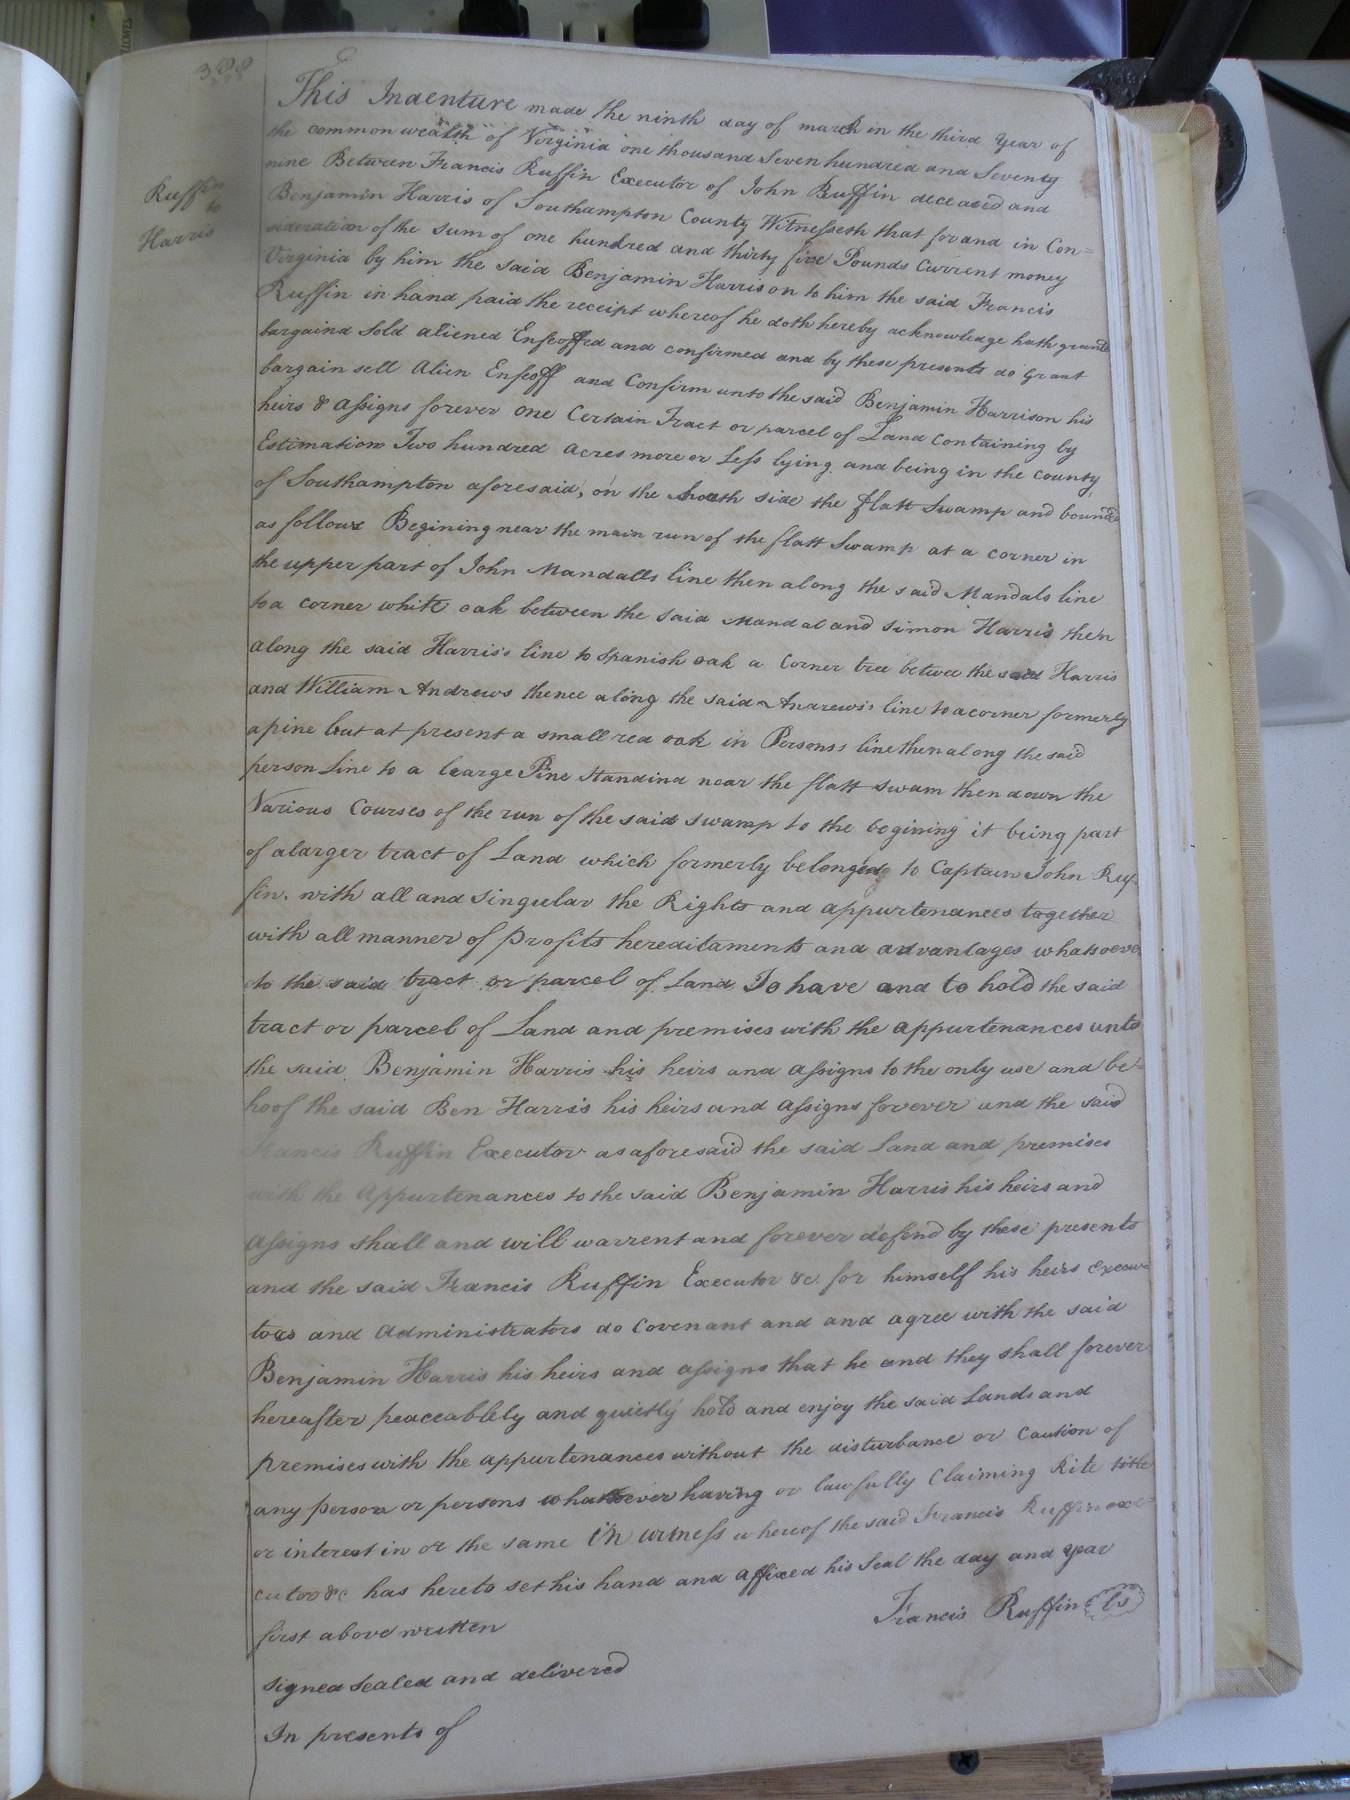 388
Ruffin
to
Harris
This Indenture made the ninth day of march in the third year of
the common wealth of Virginia one thousand Seven hundred and Seventy
nine Between Francis Ruffin Executor of John Ruffin deceased and
Benjamin Harris of Southampton County Witnesseth that for and in Con=
sideration of the Sum of one hundred and thirty five Pounds Current money
Virginia by him the said Benjamin Harrison to him the said Francis
Ruffin in hand paid the receipt whereof he doth hereby acknowledge hath granted
bargaind Sold aliened Enfeoffed and confirmed and by these presents do Grant
bargain sell Alien Enfeoff and Confirm unto the said Benjamin Harrison his
heirs & assigns forever one Certain Tract or parcel of Land Containing by
Estimation Two hundred acres more or Less lying and being in the county
of Southampton aforesaid, on the South side the flatt Swamp and bounded
as follows Begining near the main run of the flatt Swamp at a corner in
the upper part of John Mandalls line then along the said Mandals line
to a corner white oak between the said Mandal and Simon Harris then
along the said Harris's line to Spanish oak a Corner tree betwee the said Harris
and William Andrews thence along the said Andrews's line to a corner formerly
a pine but at present a small red oak in Persons's line then along the said
person Line to a Learge Pine Standind near the flatt swam then down the
Various Courses of the run of the said swamp to the begining it being part
of a larger tract of Land which formerly belonged to Captain John Ruf-
fin. with all and Singular the Rights and appurtenances together
with all manner of profits hereditaments and advantages whatsoever
to the said tract or parcel of Land To have and to hold the said
tract or parcel of Land and premises with the appurtenances unto
the said Benjamin Harris his heirs and assigns to the only use and be=
hoof the said Ben Harris his heirs and assigns forever and the said
Francis Ruffin Executor as aforesaid the said Land and premises
with the Appurtenances to the said Benjamin Harris his heirs and
assigns shall and will warrent and forever defend by these presents
and the said Francis Ruffin Executor &c. for himself his heirs Execu-
tors and administrators do Covenant and and agree with the said
Benjamin Harris his heirs and assigns that he and they shall forever
hereafter peaceablely and quietly hold and enjoy the said Lands and
premises with the appurtenances without the disturbance or Caution of
any person or persons whatsoever having or lawfully Claiming Rite title
or interest in or the same in witness whereof the said Francis Ruffin exe=
cutor &c has hereto set his hand and affixed his Seal the day and year
first above written
Francis Ruffin Ls
signed Sealed and delivered
In presents of